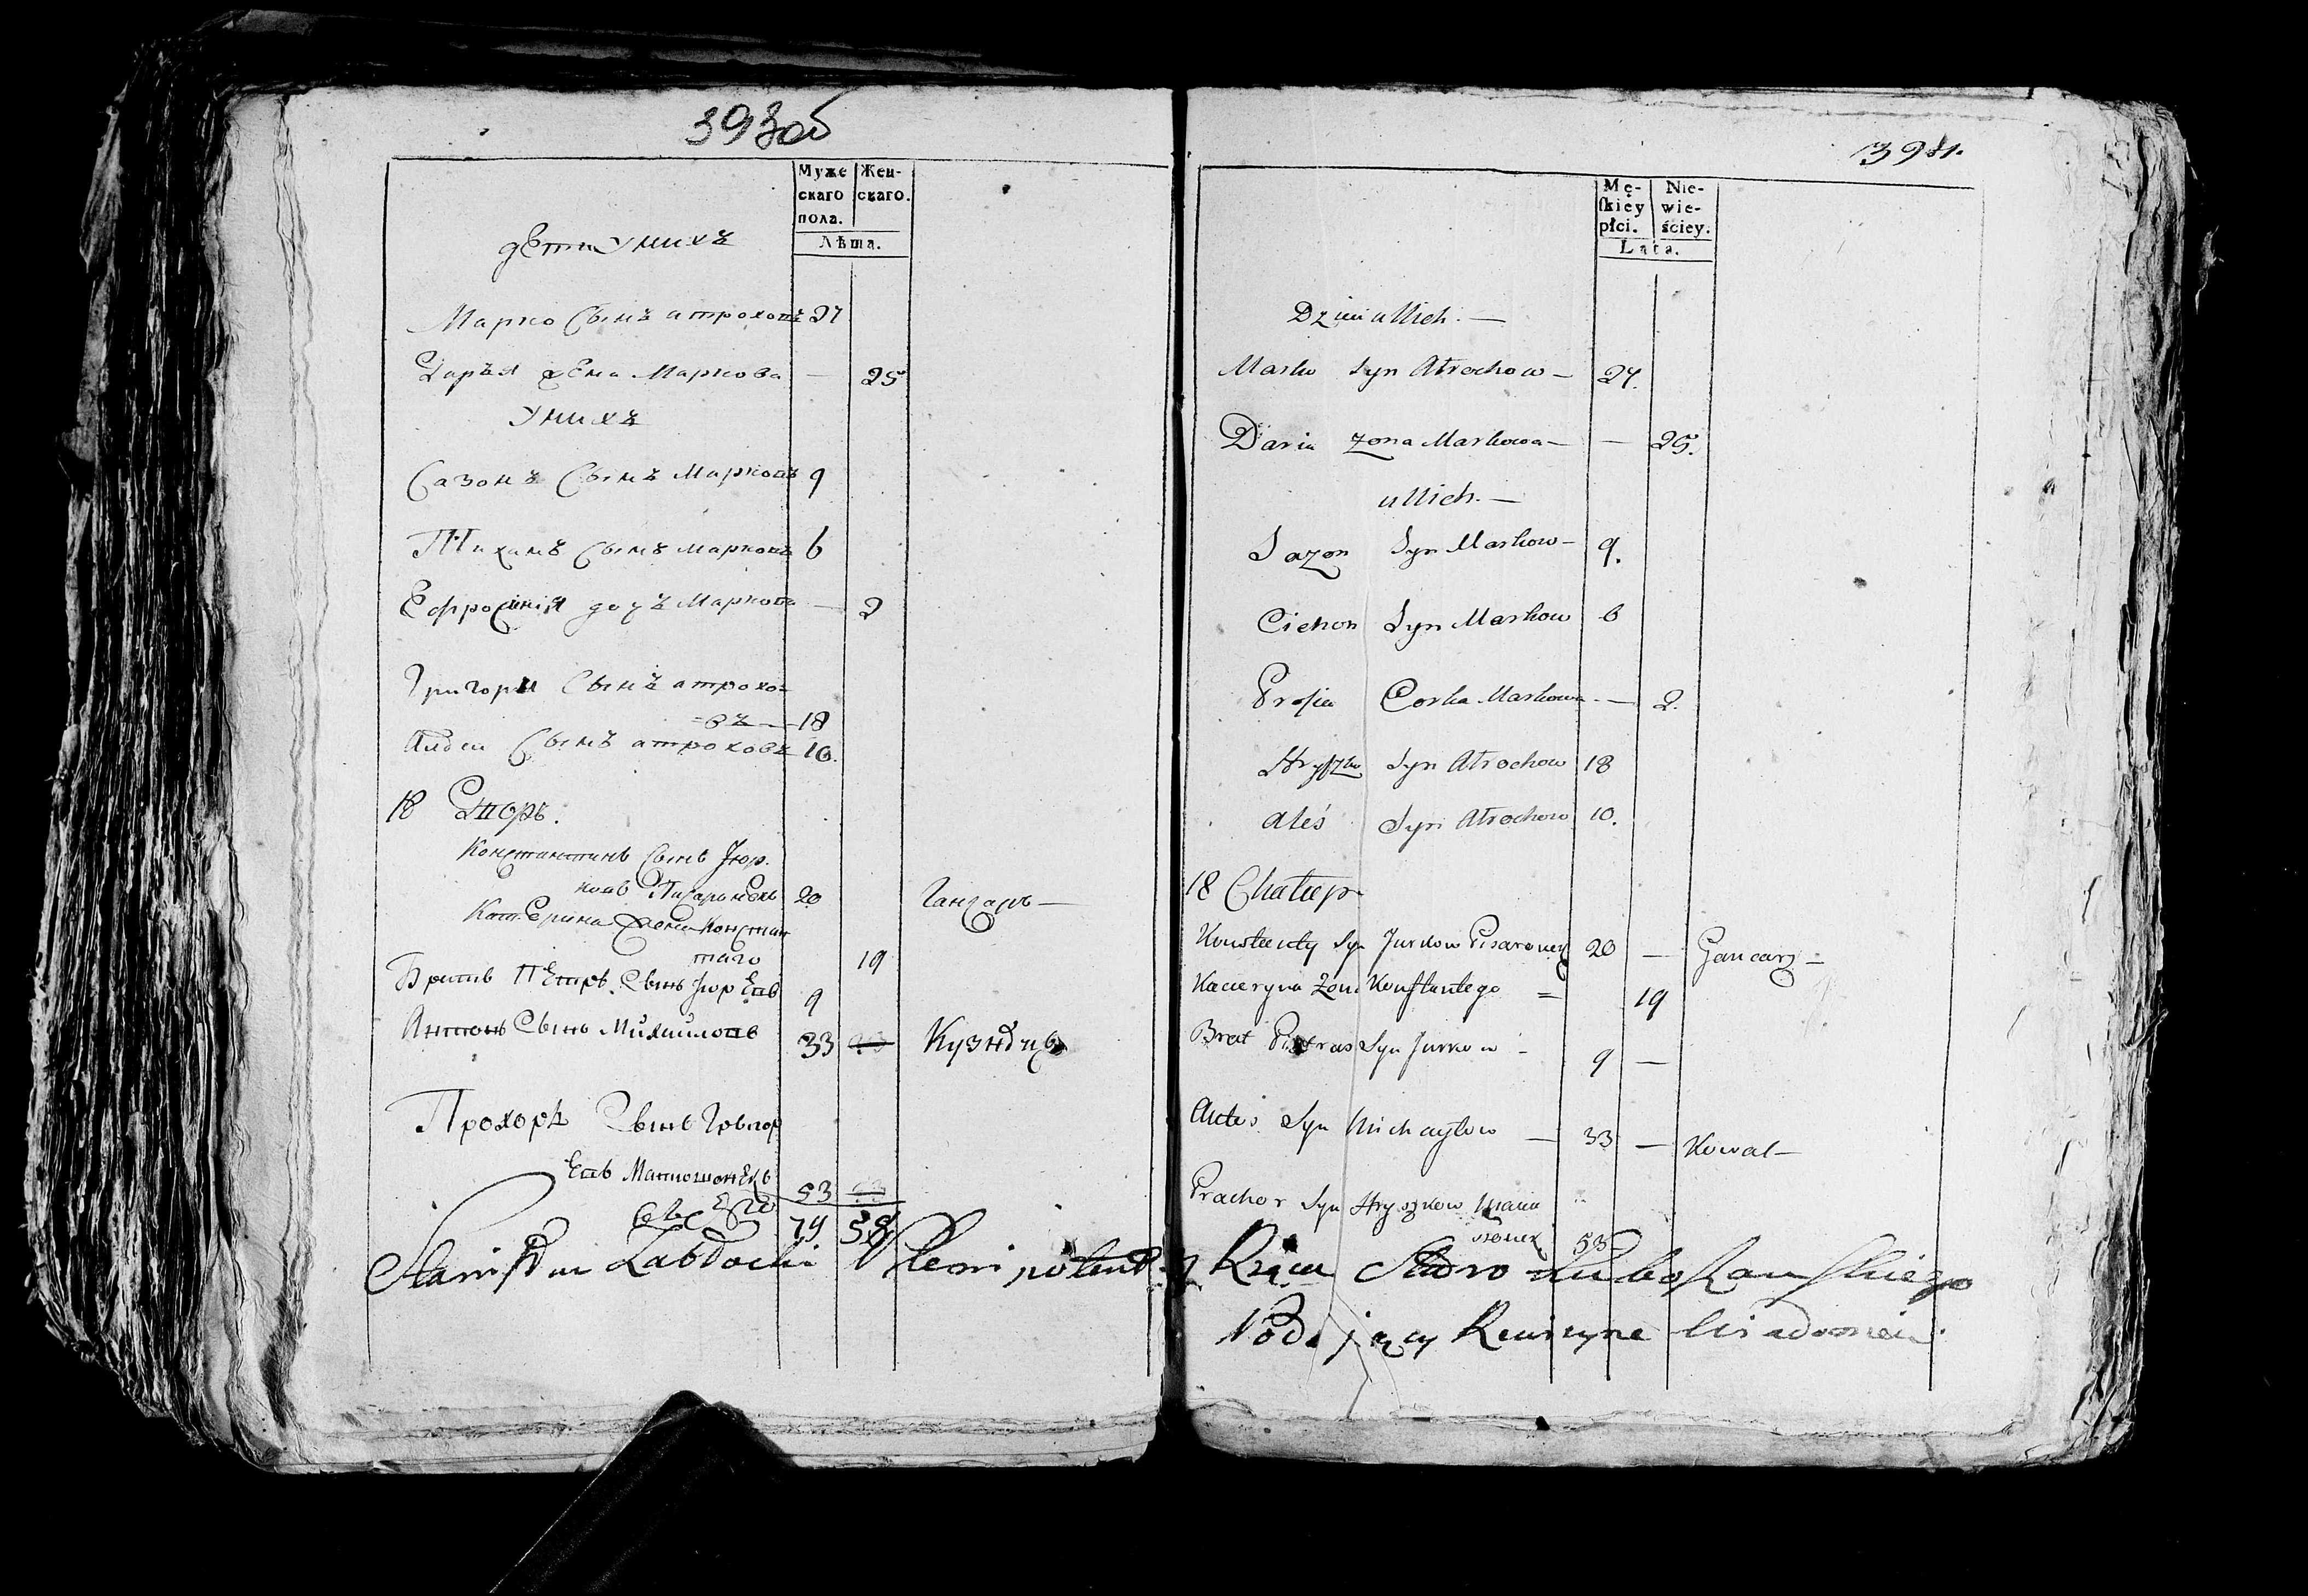 393об
Муже
скаго
пола.
Жен-
скаго.
Лѣта.
дети У нихъ
Марко Сынъ атроховъ 27
Дарья жена Маркова — 25
У нихъ
Сазонъ Сынъ Марковъ 9
Тиханъ Сынъ Марковъ 6
Ефросинія дочъ Маркова — 2
Григори Сынъ атрохо=
=въ — 18
Сынъ атроховъ 10.
18 Дворъ.
Константинъ Сынъ Юр.
ковъ 20 Ганчаръ —
Катерина Жена Констан
таго 19
Братъ Петръ Сынъ Юрьевъ 9
Антонъ Сынъ Михайловъ 33 Кузнецъ
Прохоръ Сынъ Григор
евъ 53
79 58
Plenipotent
394.
Mę-
skiey
płci.
Nie-
wie-
ściey.
Lata.
Dzieci u Nich. —
Marko Syn Atrochow — 27.
Daria zona Markowa — — 25.
u Nich. —
Sazon Syn Markow — 9.
Cichon Syn Markow 6
Prosia Corka Markowa. — 2.
Hryszko Syn Atrochow 18
Aleś Syn Atrochow 10.
18 Chałupa
Konstanty Syn Jurkow Pisaronek 20 — Gancarz —
Kacieryna Zona Konstantego = 19
Brat Pietras Syn Jurkow — 9 —
Antoś Syn Michayłow — 33 — Kowal —
Prachor Syn Hryszkow 53
Xięcia Lubostanskiego
Podający Rewizyne